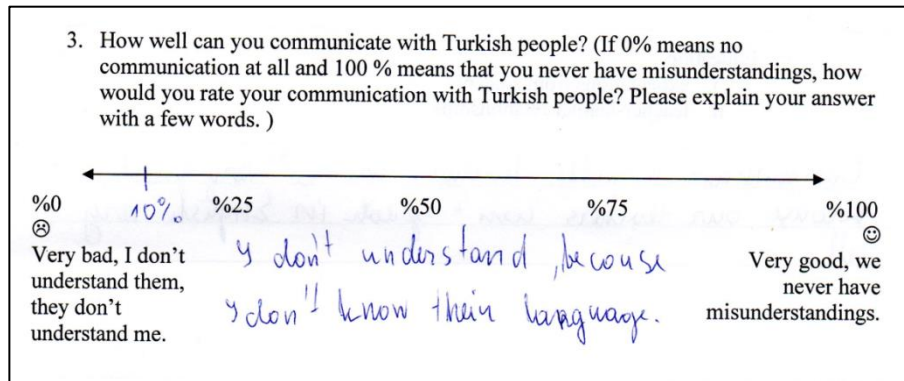 3. How well can you communicate with Turkish people? (If 0% means no
communication at all and 100 % means that you never have misunderstandings, how
would you rate your communication with Turkish people? Please explain your answer
with a few words. )
%0 10% %25 %50 %75 %100
☹ ☺
Very bad, I don't
understand them,
they don't
understand me.
I don't understand, becouse
I don't know their language.
Very good, we
never have
misunderstandings.